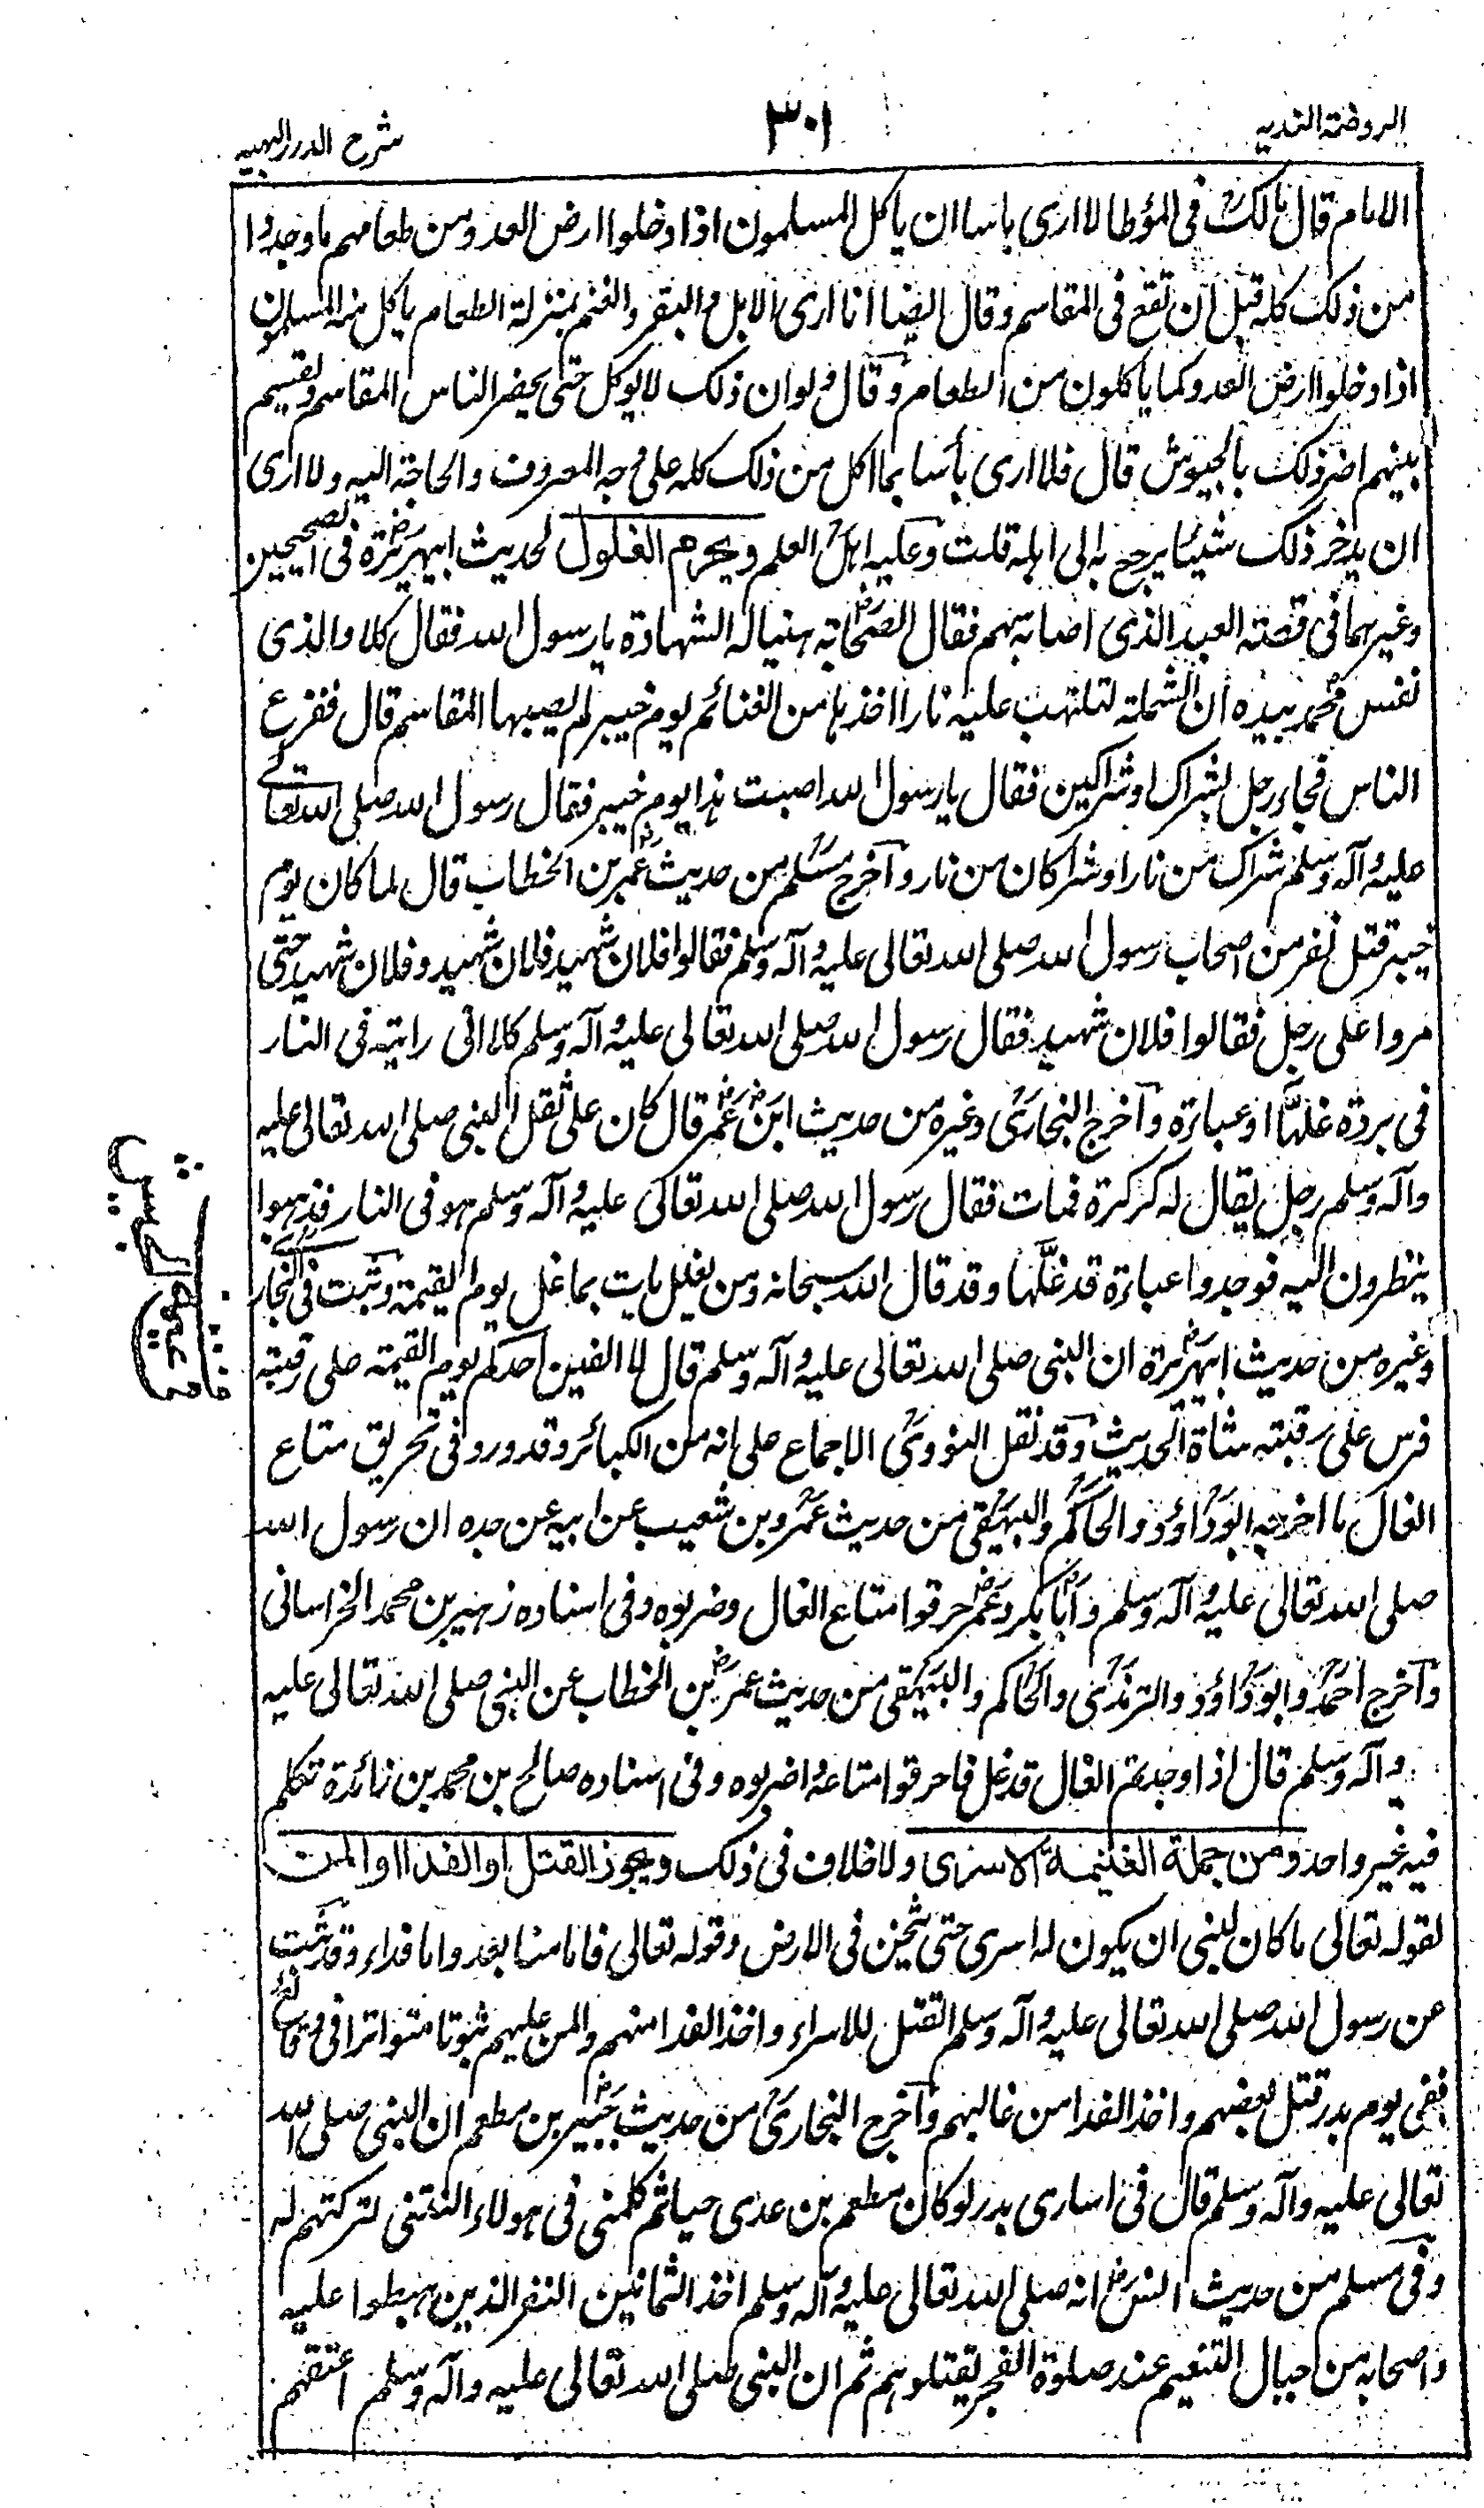 الروضة الندیه
٣٠١
شرح الدرر البهیه
الامام قال مالک فی المؤطا لا اری باسا ان یاکل المسلمون اذا دخلوا ارض العدو من طعامهم ما وجدوا
من ذلک کله قبل ان تقع فی المقاسم وقال ایضا انا اری الابل والبقر والغنم بمنزلة الطعام یاکل منه المسلمون
اذا دخلوا ارض العدو کما یاکلون من الطعام وقال ولو ان ذلک لا یوکل حتی یحضر الناس المقاسم ویقسم
بینهم اضر ذلک بالجیوش قال فلا اری بأسا بما اکل من ذلک کله علی وجه المعروف والحاجة الیه ولا اری
ان یدخر ذلک شیئا یرجع به الی اهله قلت وعلیه اهل العلم ویحرم الغلول لحدیث ابیهریرة فی الصحیحین
وغیرهما فی قصة العبد الذی اصابه سهم فقال الصحابة هنیا له الشهادة یا رسول الله فقال کلا والذی
نفس محمد بیده ان الشملة لتلتهب علیه نارا اخذها من الغنائم یوم خیبر لم یصبها المقاسم قال ففزع
الناس فجاء رجل بشراک او شراکین فقال یا رسول الله اصبت هذا یوم خیبر فقال رسول الله صلی الله تعالے
علیه وآله وسلم شراک من نار او شراکان من نار وآخرج مسلم من حدیث عمر بن الخطاب قال لما کان یوم
خیبر قتل نفر من اصحاب رسول الله صلی الله تعالی علیه وآله وسلم فقالوا فلان شهید فلان شهید وفلان شهید حتی
مروا علی رجل فقالوا فلان شهید فقال رسول الله صلی الله تعالی علیه وآله وسلم کلا انی رایته فی النار
فی بردة غلها او عباءة وآخرج البخاری وغیره من حدیث ابن عمر قال کان علی ثقل النبی صلی الله تعالی علیه
وآله وسلم رجل یقال له کرکرة فمات فقال رسول الله صلی الله تعالی علیه وآله وسلم هو فی النار فذهبوا
ینظرون الیه فوجدوا عباءة قد غلها وقد قال الله سبحانه ومن یغلل یات بما غل یوم القیمة وثبت فی البخاری
وغیره من حدیث ابیهریرة ان النبی صلی الله تعالی علیه وآله وسلم قال لا الفین احدکم یوم القیمة علی رقبته
فرس علی رقبته شاة الحدیث وقد نقل النووی الاجماع علی انه من الکبائر وقد ورد فی تحریق متاع
الغال ما اخرجه ابوداؤد والحاکم والبیهقی من حدیث عمرو بن شعیب عن ابیه عن جده ان رسول الله
صلی الله تعالی علیه وآله وسلم وابا بکر وعمر احرقوا متاع الغال وضربوه وفی اسناده زهیر بن محمد الخراسانی
وآخرج احمد وابوداؤد والترمذی والحاکم والبیهقی من حدیث عمر بن الخطاب عن النبی صلی الله تعالی علیه
وآله وسلم قال اذا وجدتم الغال قد غل فاحرقوا متاعه واضربوه وفی اسناده صالح بن محمد بن زائدة تکلم
فیه غیر واحد ومن جملة الغنیمة الاسری ولا خلاف فی ذلک ویجوز القتل او الفدا او المن
لقوله تعالی ما کان لنبی ان یکون له اسری حتی یثخن فی الارض وقوله تعالی فاما منا بعد واما فداء وقد ثبت
عن رسول الله صلی الله تعالی علیه وآله وسلم القتل للاسراء واخذ الفدا منهم والمن علیهم ثبوتا متواترا فی وقائع
ففی یوم بدر قتل بعضهم واخذ الفدا من غالبهم وآخرج البخاری من حدیث جبیر بن مطعم ان النبی صلی الله
تعالی علیه وآله وسلم قال فی اساری بدر لو کان مطعم بن عدی حیا ثم کلمنی فی هولاء النتنی لترکتهم له
وفی مسلم من حدیث انس انه صلی الله تعالی علیه وآله وسلم اخذ الثمانین النفر الذین هبطوا علیه
واصحابه من جبال التنعیم عند صلوة الفجر یقتلوهم ثم ان النبی صلی الله تعالی علیه وآله وسلم اعتقهم